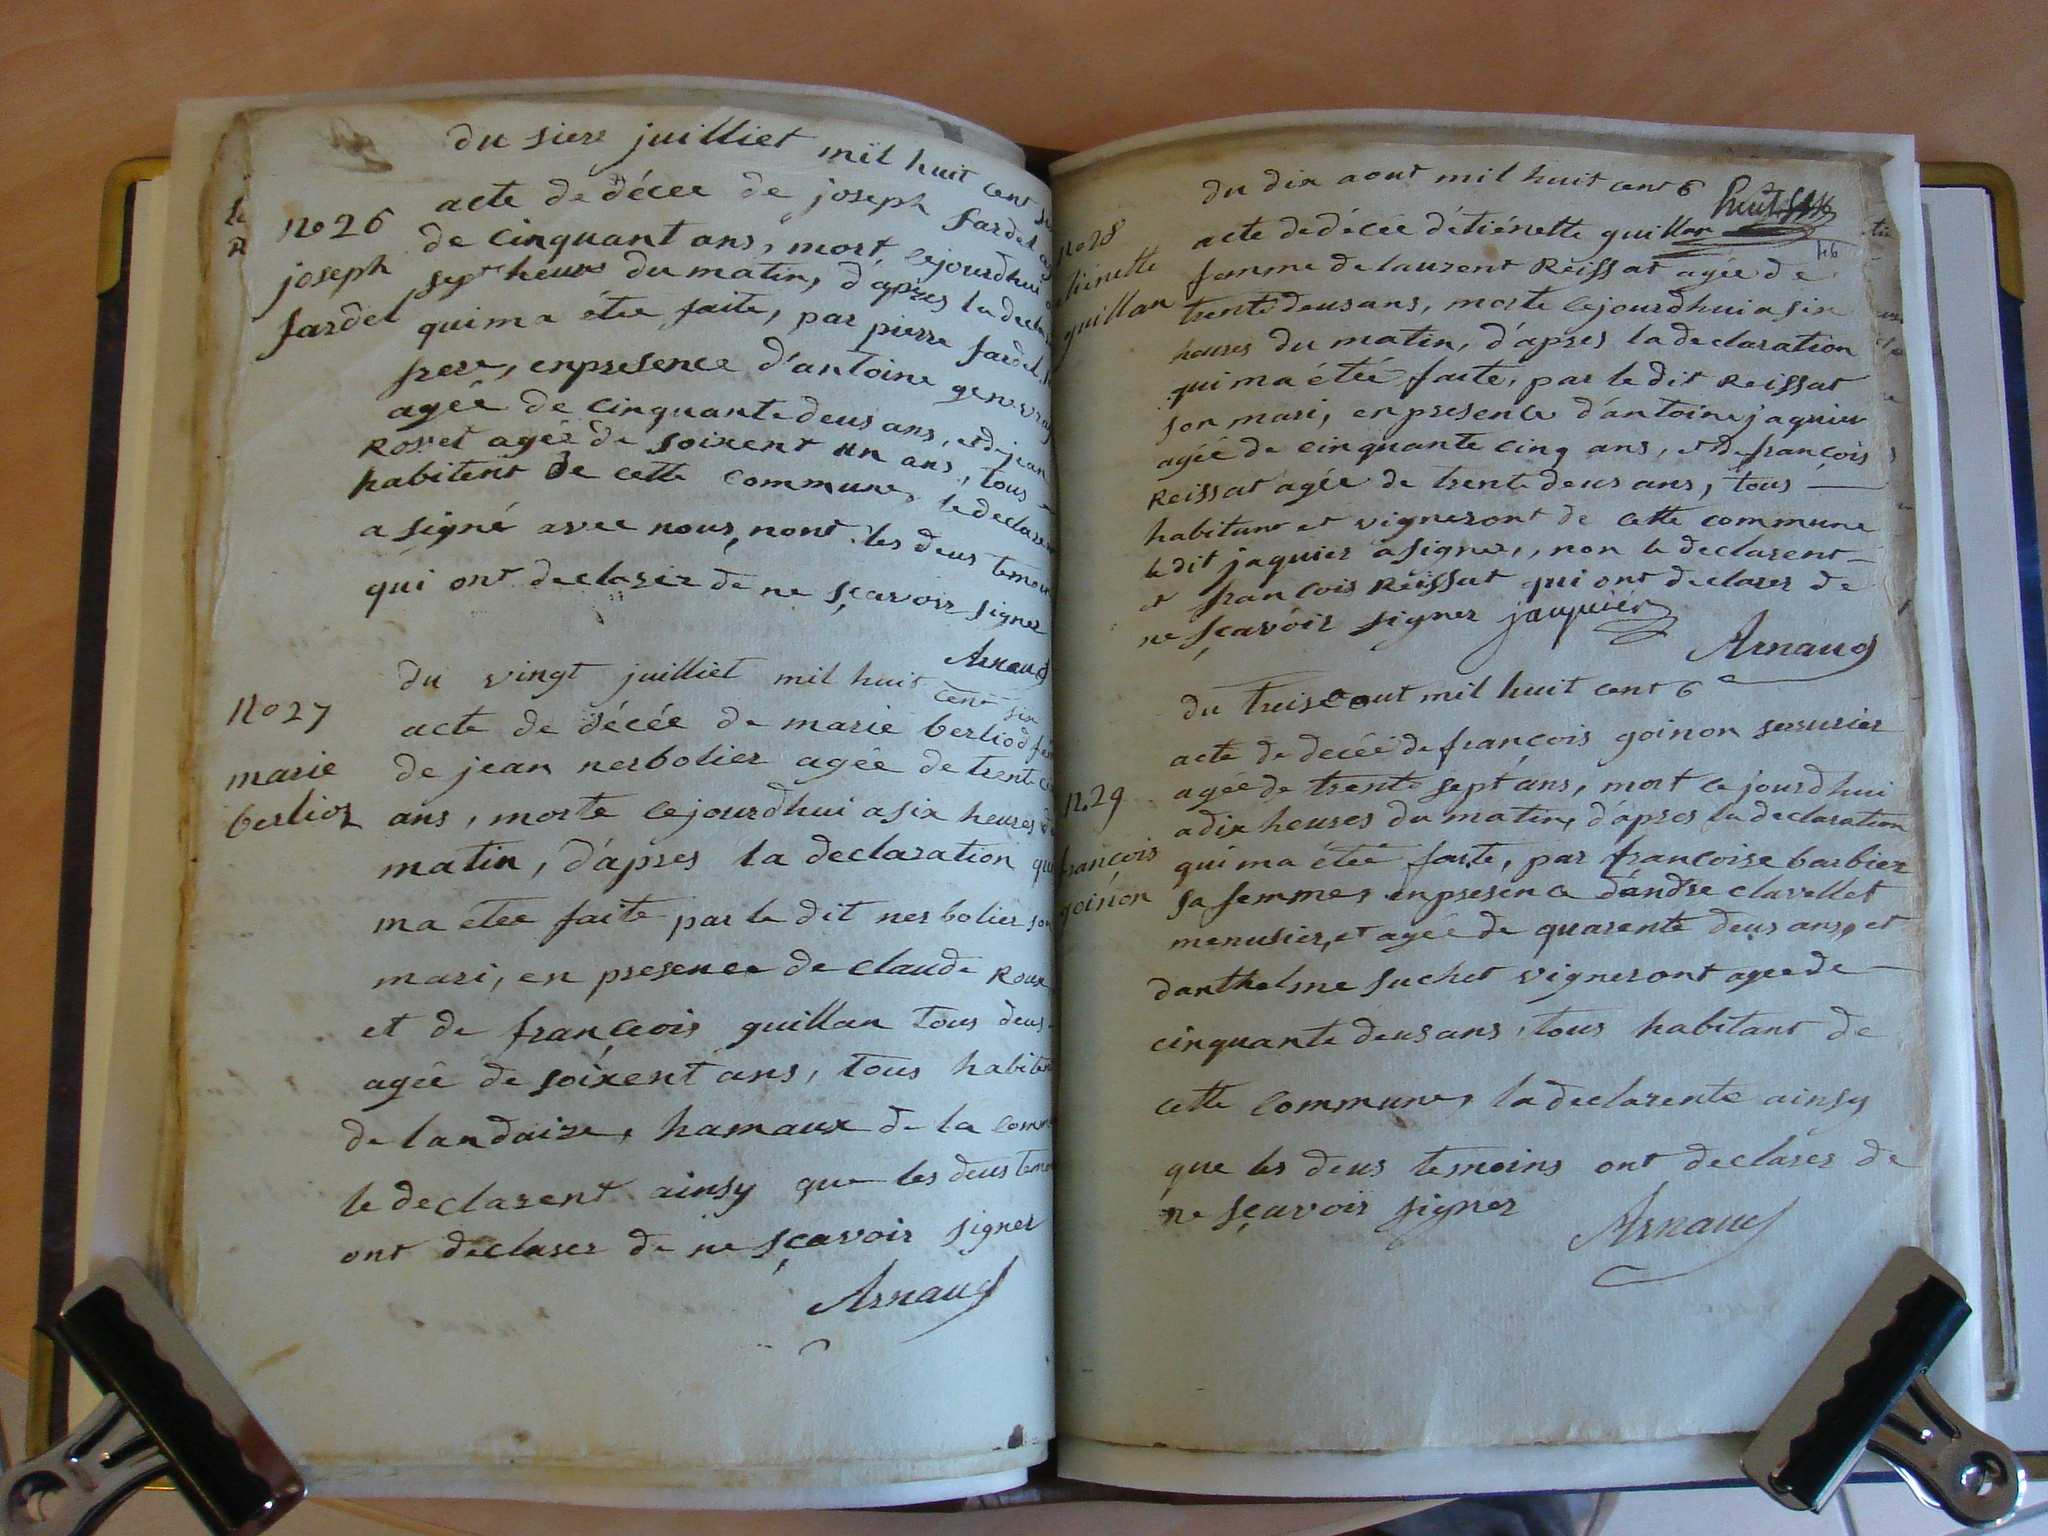 du sieze juilliet mil huit cent
no 26
joseph
fardel
acte de décée de joseph fardel
de cinquant ans, mort, cejourdhui
sept heures du matin, d'apres la decla
qui ma étée faite, par pierre fardel
frere, enpresence d'antoine
agée de cinquante deus ans, et de jean
Rovet agée de soixent un ans, tous
habitent de cette commune, le declarent
a signé avec nous, nont les deus temoin
qui ont declarer de ne sçavoir signer
Arnaud
du vingt juilliet mil huit cent six
no 27
marie
berlioz
acte de décée de marie berliod
de jean nerbolier agée de trente
ans, morte cejourdhui a six heures
matin, d'apres la declaration qui
ma étée faite par le dit nerbolier son
mari, en presence de claude Roux
et de françois guillan tous deus
agée de soixent ans, tous habitent
de landaize, hamaux de la comm
le declarent ainsy que les deus temoi
ont declarer de ne sçavoir signer
Arnaud
du dix aout mil huit cent 6
46
no 28
étiénette
guillan
acte de décée détiénette guillan
femme de laurent Reissat agée de
trente deus ans, morte cejourdhui a six
heures du matin, d'apres la declaration
qui ma étée faite, par le dit Reissat
son mari, en presence d'antoine jaquier
agée de cinquante cinq ans, et de françois
Reissat agée de trente deus ans, tous
habitant et vigneront de cette commune
le dit jaquier a signer, non le declarent
et françois Reissat qui ont declarer de
ne sçavoir signer jaquier
Arnaud
du treise aout mil huit cent 6
no 29
françois
goinon
acte de decée de françois goinon serrurier
agée de trente sept ans, mort ce jourdhui
a dix heures du matin, d'apres la declaration
qui ma étée faite, par françoise barbier
sa femme, en presence d'andre clavellet
menusier, et agée de quarente deus ans, et
danthelme suchet vigneront agee de
cinquante deus ans, tous habitant de
cette commune, la declarente ainsy
que les deus temoins ont declarer de
ne sçavoir signer
Arnaud